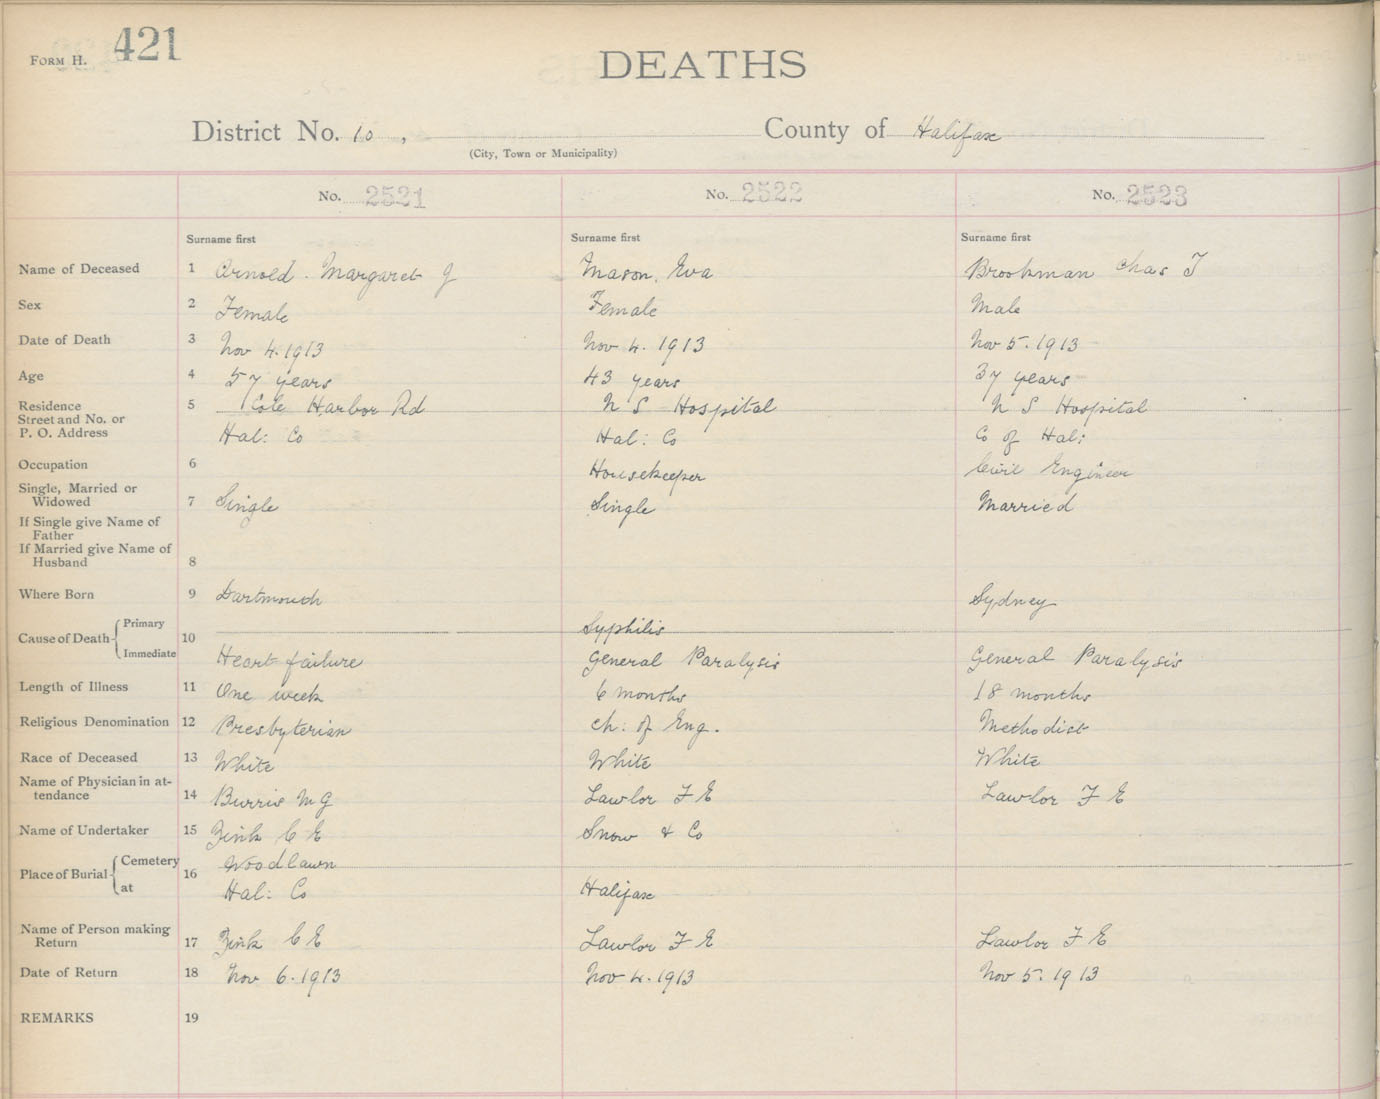 FORM H. 421
DEATHS
District No. 10 , County of Halifax
(City, Town or Municipality)
No. 2521 No. 2522 No. 2523
Surname first Surname first Surname first
Name of Deceased 1 Arnold . Margaret J Mason, Eva Brookman Chas T
Sex 2 Female Female Male
Date of Death 3 Nov 4. 1913 Nov 4. 1913 Nov 5. 1913
Age 4 57 years 43 years 37 years
Residence 5 Cole Harbor Rd N S Hospital N S Hospital
Street and No. or
P. O. Address Hal: Co Hal: Co Co of Hal:
Occupation 6 Housekeeper Civil Engineer
Single, Married or
Widowed 7 Single Single Married
If Single give Name of
Father
If Married give Name of
Husband 8
Where Born 9 Dartmouth Sydney
Cause of Death Primary 10 Syphilis
Immediate Heart failure General Paralysis General Paralysis
Length of Illness 11 One week 6 months 18 months
Religious Denomination 12 Presbyterian Ch: of Eng. Methodist
Race of Deceased 13 White White White
Name of Physician in at-
tendance 14 Burris M G Lawlor F E Lawlor F E
Name of Undertaker 15 Zink C E Snow & Co
Place of Burial Cemetery 16 Woodlawn
at Hal: Co Halifax
Name of Person making
Return 17 Zink C E Lawlor F E Lawlor F E
Date of Return 18 Nov 6. 1913 Nov 4. 1913 Nov 5. 1913
REMARKS 19